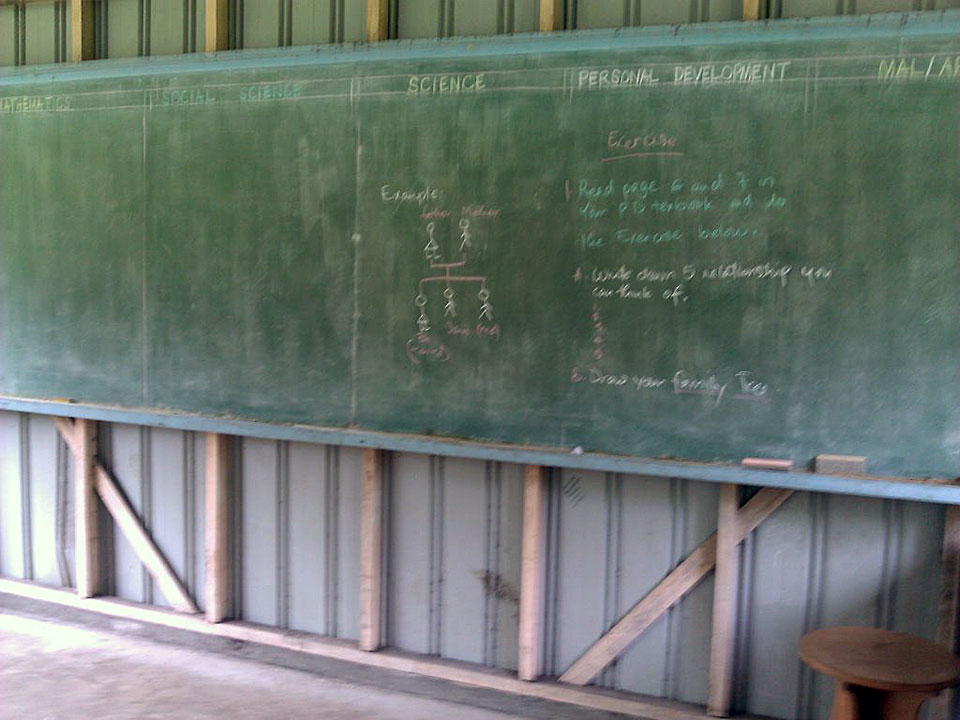 MATHEMATICS
SOCIAL SCIENCE
SCIENCE
PERSONAL DEVELOPMENT
MAL/AR
Example:
Father Mother
Exercise
1. Read page 6 and 7 in
your PD textbook and do
the Exercise below.
A. Write down 5 relationship you
can think of.
B. Draw your family Tree.